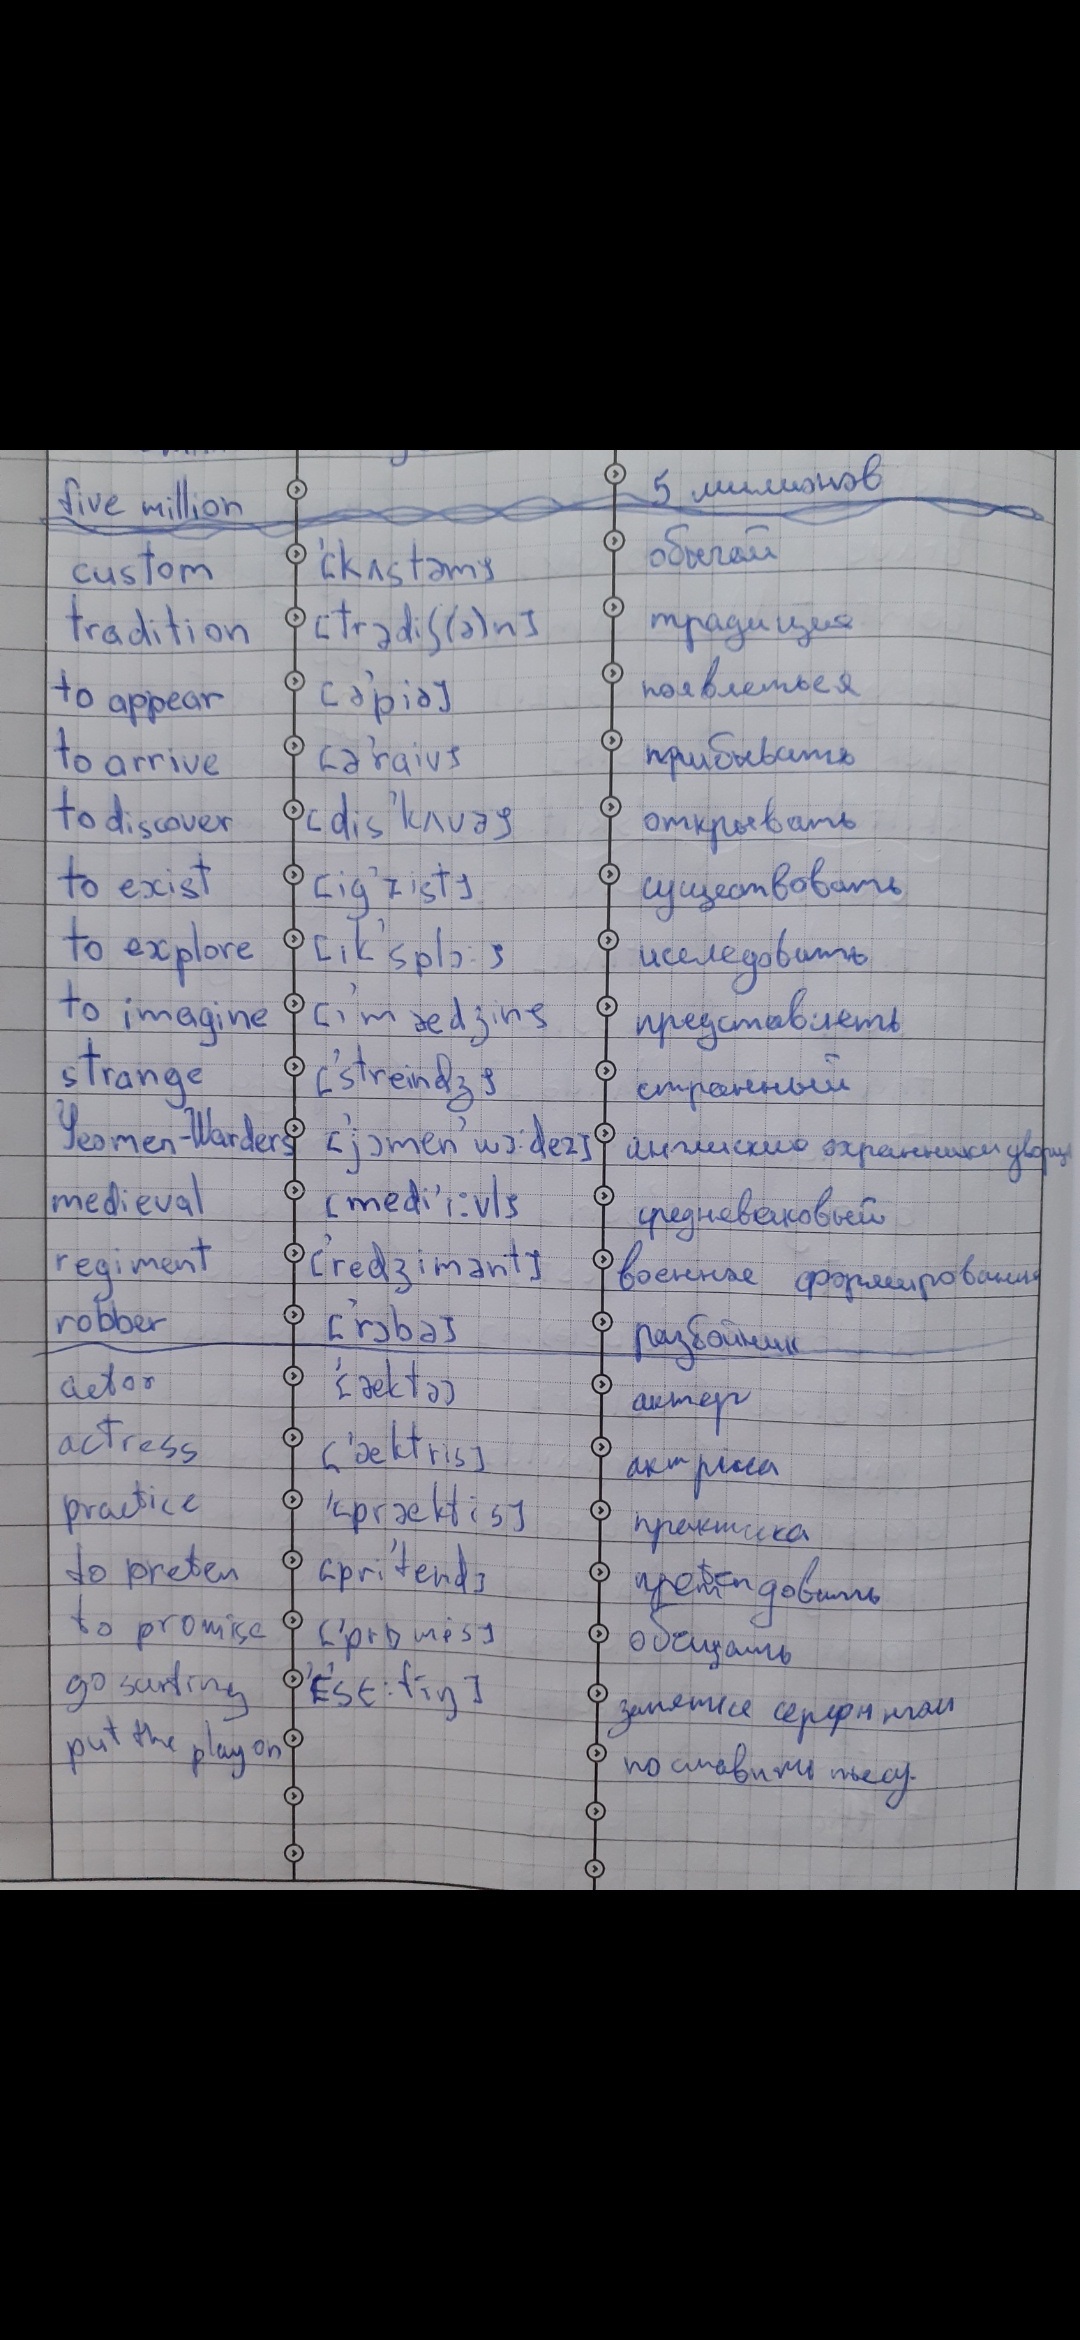 five million 5 милионов
custom ['kʌstəm] обычай
tradition [trədiʃ(ə)n] традиция
to appear [ə'piə] появляться
to arrive [ə'raiv] прибывать
to discover [dis'kʌvə] открывать
to exist [ig'zist] существовать
to explore [ik'splɔ:] исследовать
to imagine [i'mædʒin] представлять
strange ['streindʒ] странный
Yeomen-Warders ['jɔmen'wɔ:dez] английские охранники дворца
medieval [medi'i:vl] средневековый
regiment ['redʒimənt] военное формирование
robber ['rɔbə] разбойник
actor ['æktə] актер
actress ['æktris] актриса
practice '[præktis] практика
to preten [pri'tend] претендовать
to promise ['prɒmis] обещать
go surfing ['sɛ:fiŋ] занятие серфингом
put the play on поставить пьесу.